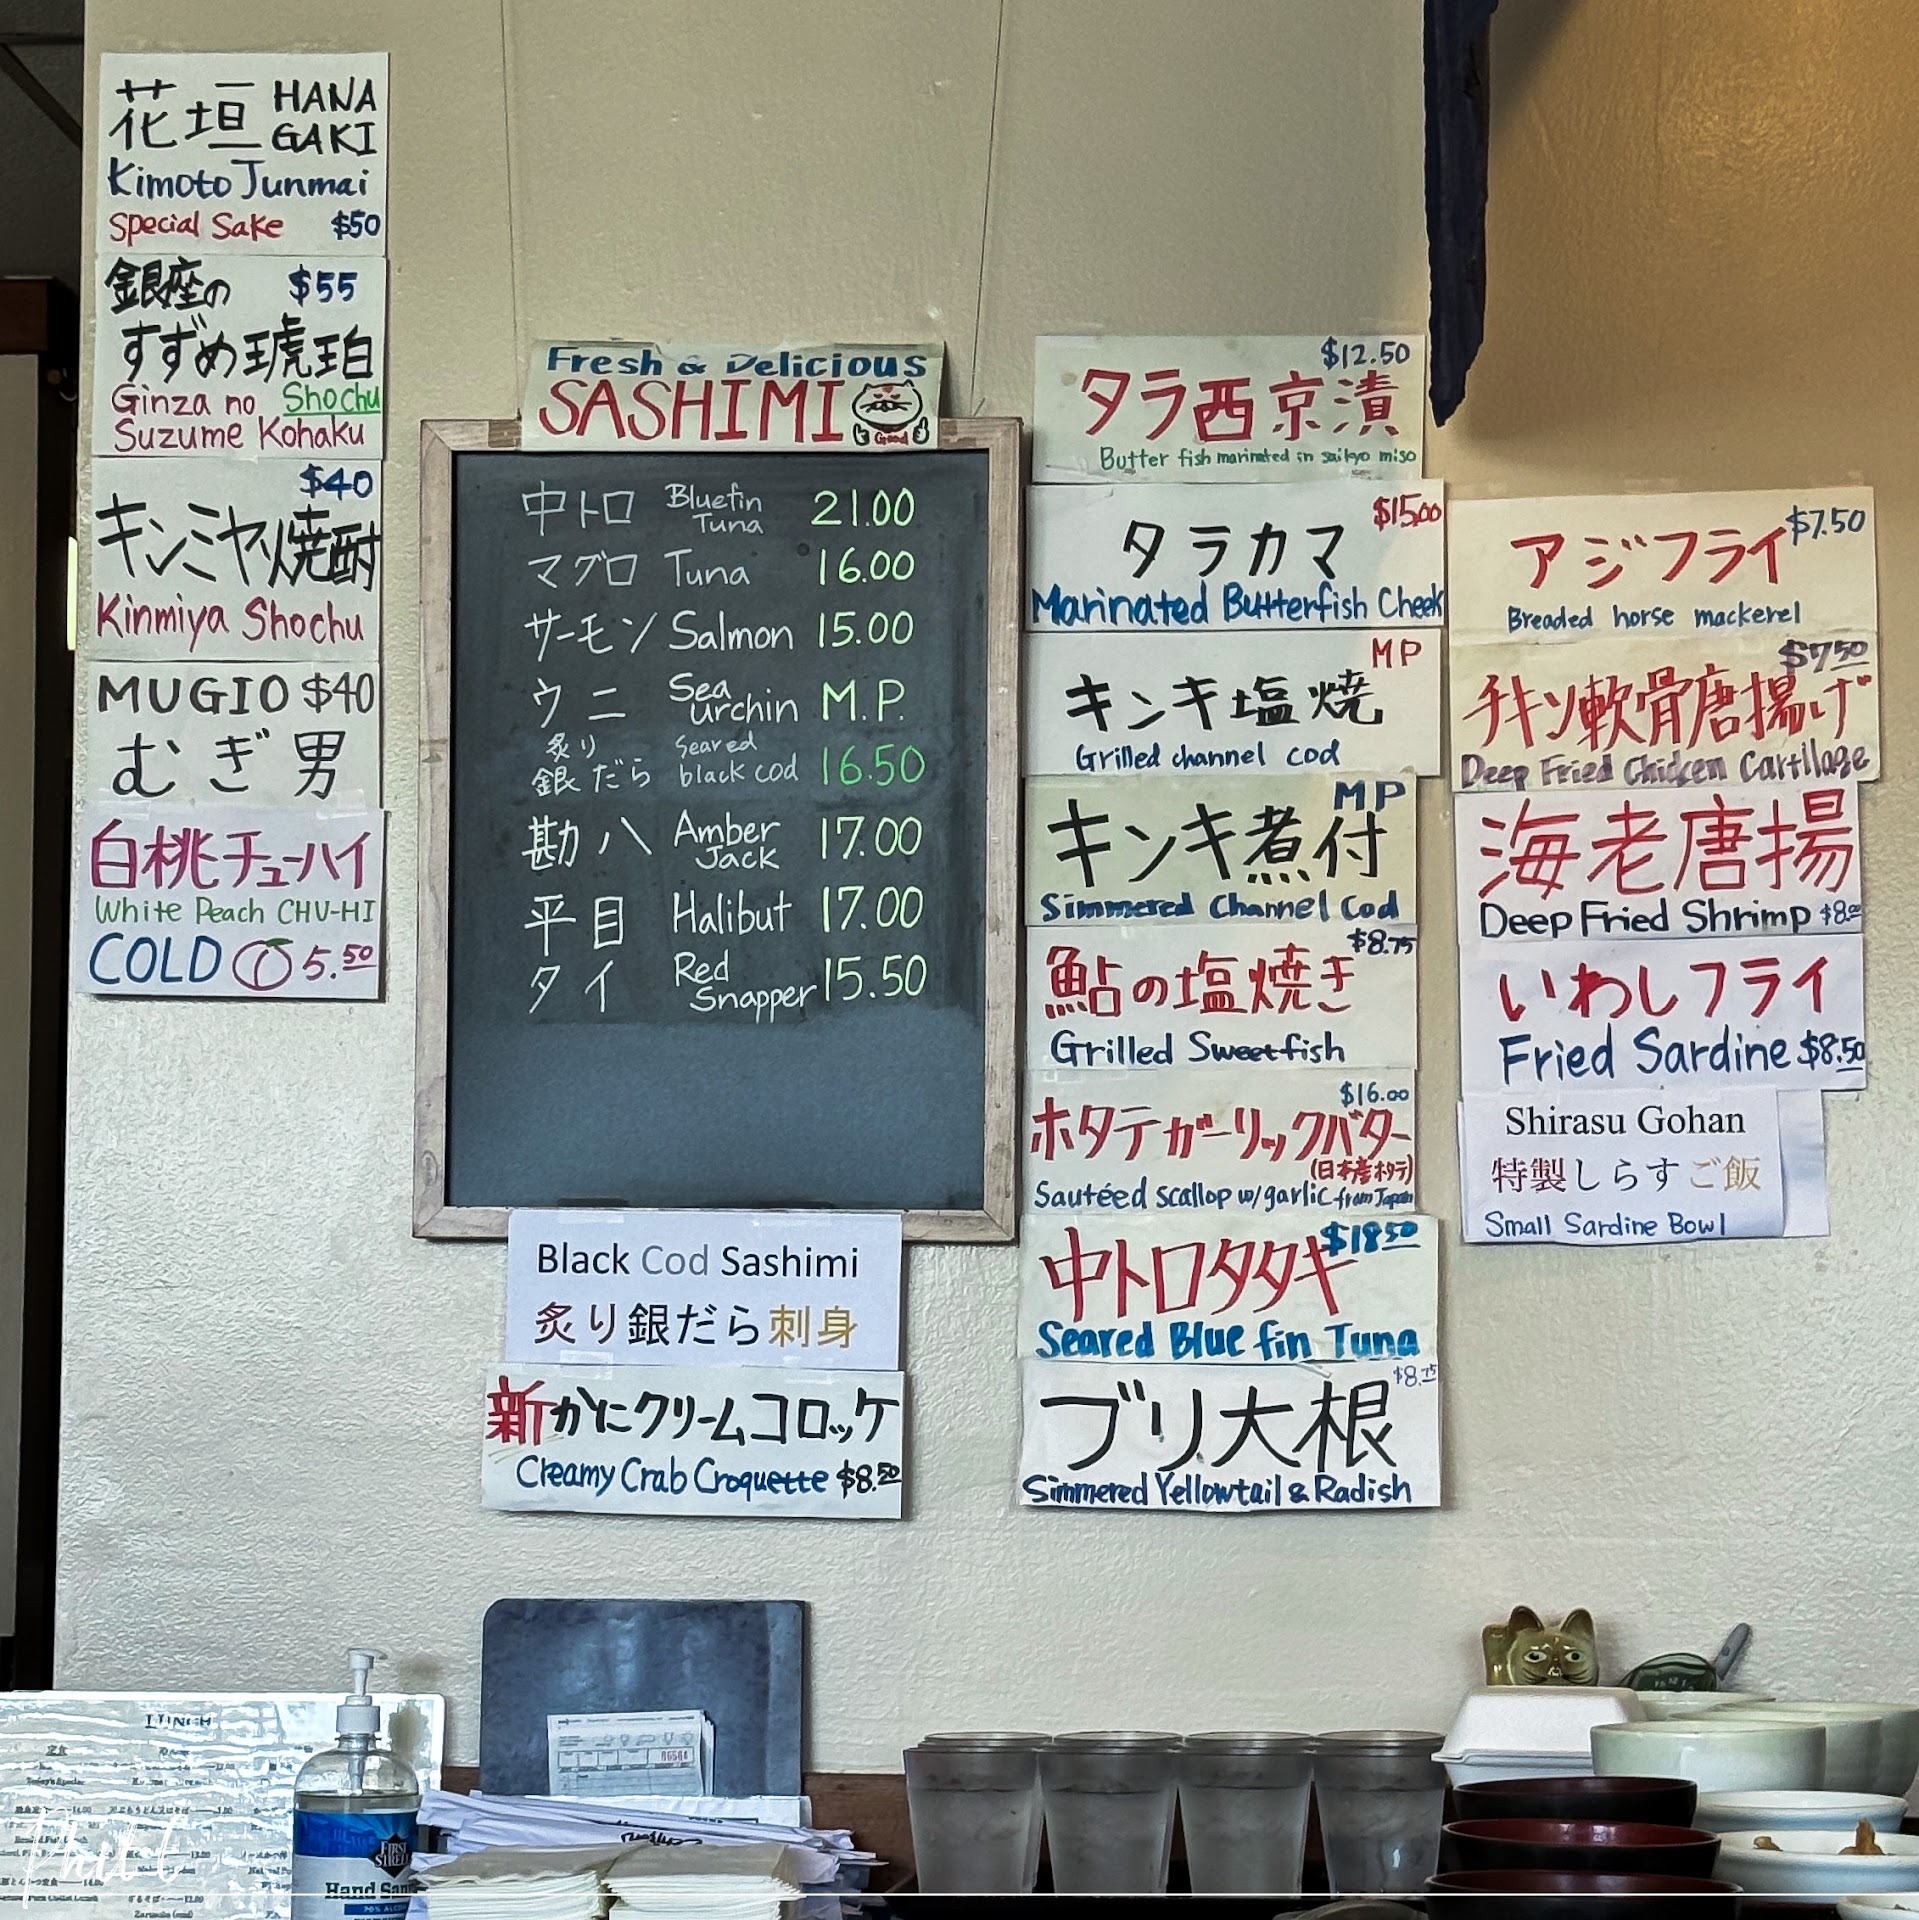 花垣 HANA
GAKI
Kimoto Junmai
Special Sake $50
銀座の $55
すずめ琥珀
Ginza no Shochu
Suzume Kohaku
$40
キンミヤ焼酎
Kinmiya Shochu
MUGIO $40
むぎ男
白桃チューハイ
White Peach CHU-HI
COLD 5.50
Fresh & Delicious
SASHIMI
Good
中トロ Bluefin Tuna 21.00
マグロ Tuna 16.00
サーモン Salmon 15.00
ウニ Sea urchin M.P.
炙り銀だら Seared black cod 16.50
勘八 Amber Jack 17.00
平目 Halibut 17.00
タイ Red Snapper 15.50
Black Cod Sashimi
炙り銀だら刺身
新かにクリームコロッケ
Creamy Crab Croquette $8.50
$12.50
タラ西京漬
Butter fish marinated in saikyo miso
$15.00
タラカマ
Marinated Butterfish Cheek
MP
キンキ塩焼
Grilled channel cod
MP
キンキ煮付
Simmered Channel Cod
$8.75
鮎の塩焼き
Grilled Sweetfish
$16.00
ホタテガーリックバター
(日本産ホタテ)
Sautéed scallop w/garlic from Japan
$18.50
中トロタタキ
Seared Blue fin Tuna
$8.75
ブリ大根
Simmered Yellowtail & Radish
$7.50
アジフライ
Breaded horse mackerel
$7.50
チキン軟骨唐揚げ
Deep Fried Chicken Cartllage
海老唐揚
Deep Fried Shrimp $8.00
いわしフライ
Fried Sardine $8.50
Shirasu Gohan
特製しらすご飯
Small Sardine Bowl
LUNCH
定食
Today's Special
FIRST
STREET
Hand San
70% ALCO
Phil t.